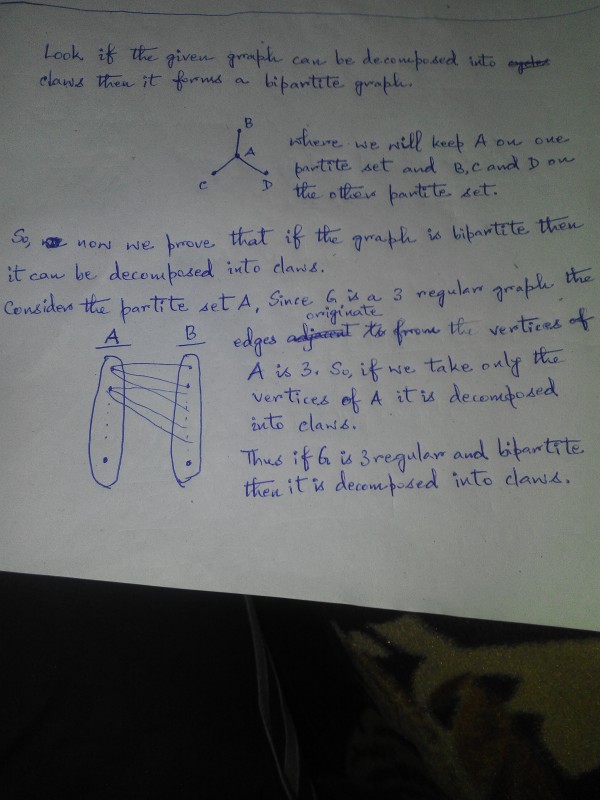 Look if the given graph can be decomposed into
claws then it forms a bipartite graph.
B
A
C
D
where we will keep A on one
partite set and B, C and D on
the other partite set.
So, now we prove that if the graph is bipartite then
it can be decomposed into claws.
Consider the partite set A, Since G is a 3 regular graph the
originate
A
B
edges adjacent to from the vertices of
A is 3. So, if we take only the
vertices of A it is decomposed
into claws.
Thus if G is 3 regular and bipartite
then it is decomposed into claws.